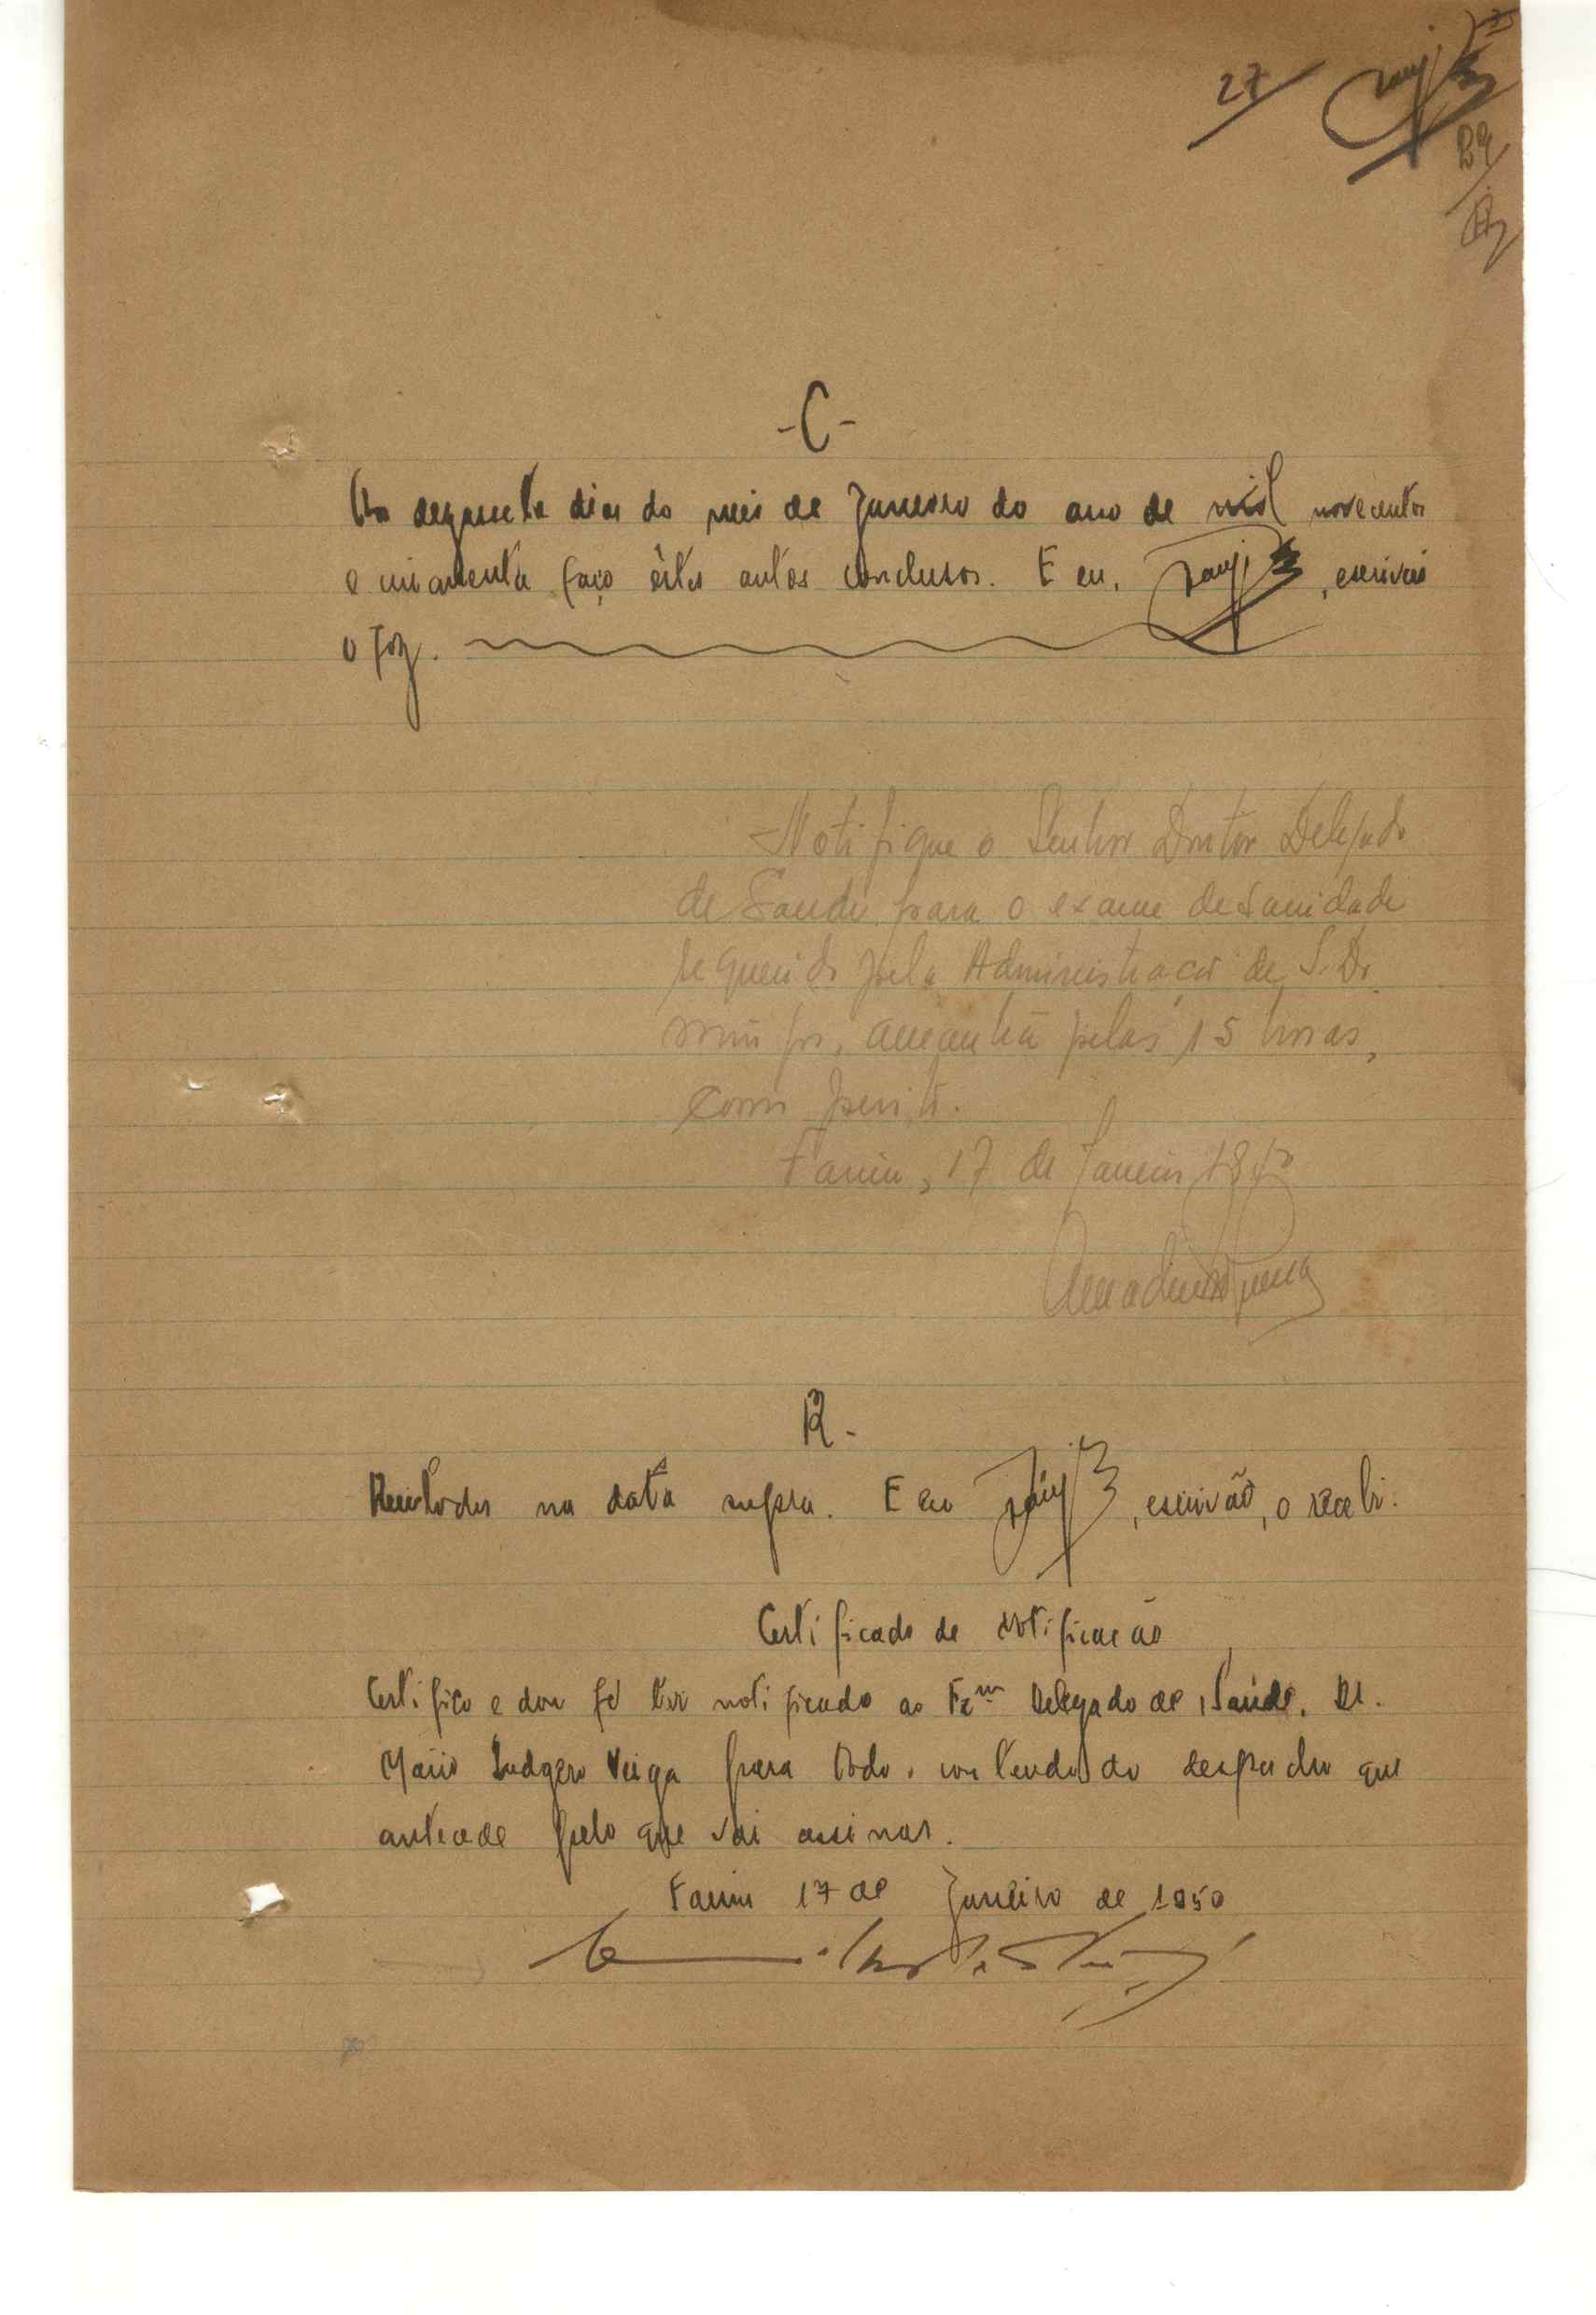 27
-C-
Aos dezassete dias do mês de Janeiro do ano de mil novecentos
e cincoenta faço êstes autos conclusos. E eu, , escrivão
o fiz.
Notifique o Senhor Doutor Delegado
de Saude para o exame de sanidade
requerido pela Administração de S. Do
mingos, amanhã pelas 15 horas,
como perito.
Farim, 17 de Janeiro
R-
Recebidos na data supra. E eu , escrivão, o recebi.
Certificado de Notificação
Certifico e dou fé ter notificado ao Exmº Delegado de Saúde. Dr.
Mário Ludgero Veiga para todo o conteudo do despacho que
antecede pelo que vai assinar.
Farim 17 de Janeiro de 1950